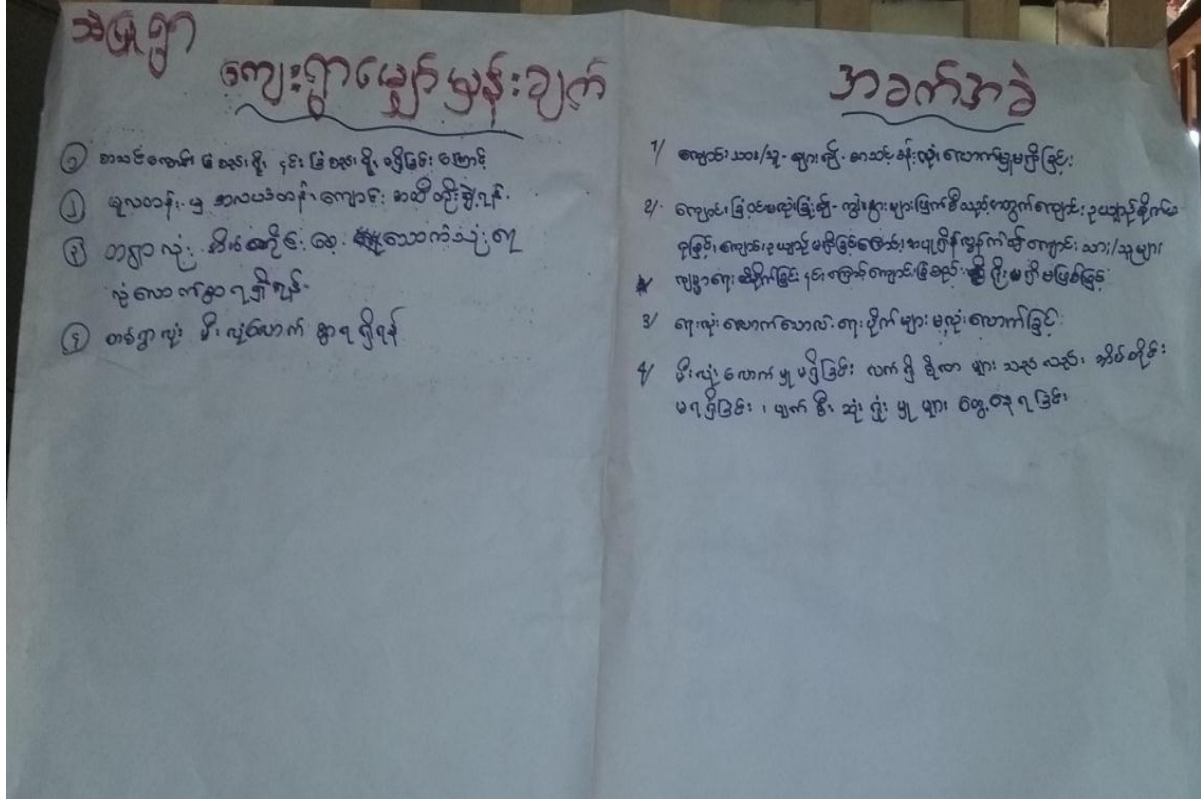 သဲဖြူရွာ
ကျေးရွာမျှော်မှန်းချက်
၁ စာသင်ကျောင်း ခြံစည်းရိုး နှင့် ခြံစည်းရိုး ရရှိခြင်း ကြောင့်
၂ မူလတန်း မှ အလယ်တန်း ကျောင်း အထိ တိုးချဲ့ရန်
၃ တရွာလုံး အိမ်တိုင်း စေ့ သောက်သုံးရေ
လုံလောက်စွာရရှိရန်
၄ တစ်ရွာလုံး မီးလုံလောက် စွာ ရရှိရန်
အခက်အခဲ
1/ ကျောင်းသား/သူ များ၍ စာသင်ခန်းလုံလောက်မှုမရှိခြင်း
2/ ကျောင်းခြံဝင်းမလုံခြုံ၍ ကျွဲနွားများဖြတ်စီးသည့်အတွက်ကျောင်းဥယျာဉ်စိုက်မ
ရခြင်း၊ ကျောင်းဥယျာဉ်မရှိခြင်းကြောင့် အပူရှိန်လွန်ကဲ၍ ကျောင်းသား/သူများ
ကျန်းမာရေး ထိခိုက်ခြင်း နှင့် ကျောင်းခြံစည်းရိုး မရှိမဖြစ်ခြင်း
3/ ရေလုံလောက်သော်လည်း ရေပိုက်များ မလုံလောက်ခြင်း
4/ မီးလုံလောက်မှု မရှိခြင်း လက်ရှိ ဆိုလာ များ သည်လည်း အိမ်တိုင်း
မရရှိခြင်း ၊ ပျက်စီး ဆုံးရှုံး မှု များ တွေ့နေရခြင်း